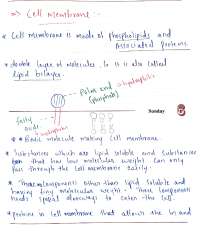 => Cell membrane :-
* Cell membrane is made of phospholipids and
associated proteins.
* double layer of molecules, so it is also called
lipid bilayer.
→ hydrophilic
→ Polar end
(phosphate)
Sunday
fatty
acids
→ hydrophobic
* Basic molecule making cell membrane
* Substances which are lipid soluble and substances
that has low molecular weight can only
pass through the cell membrane easily.
* Those components other than lipid soluble and
having tiny molecular weight. These components
needs special doorways to enter the cell.
* proteins in cell membrane that allows the in and